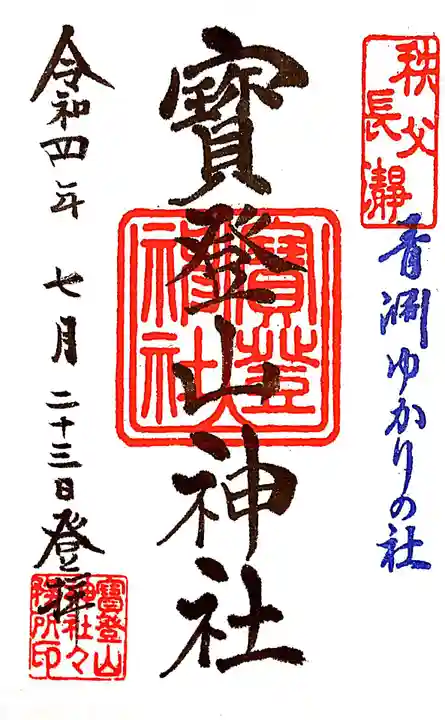 秩父
長瀞
青淵ゆかりの社
寳登山神社
寳登山
神社
令和四年 七月二十三日登拝
寳登山
神社々
務所印